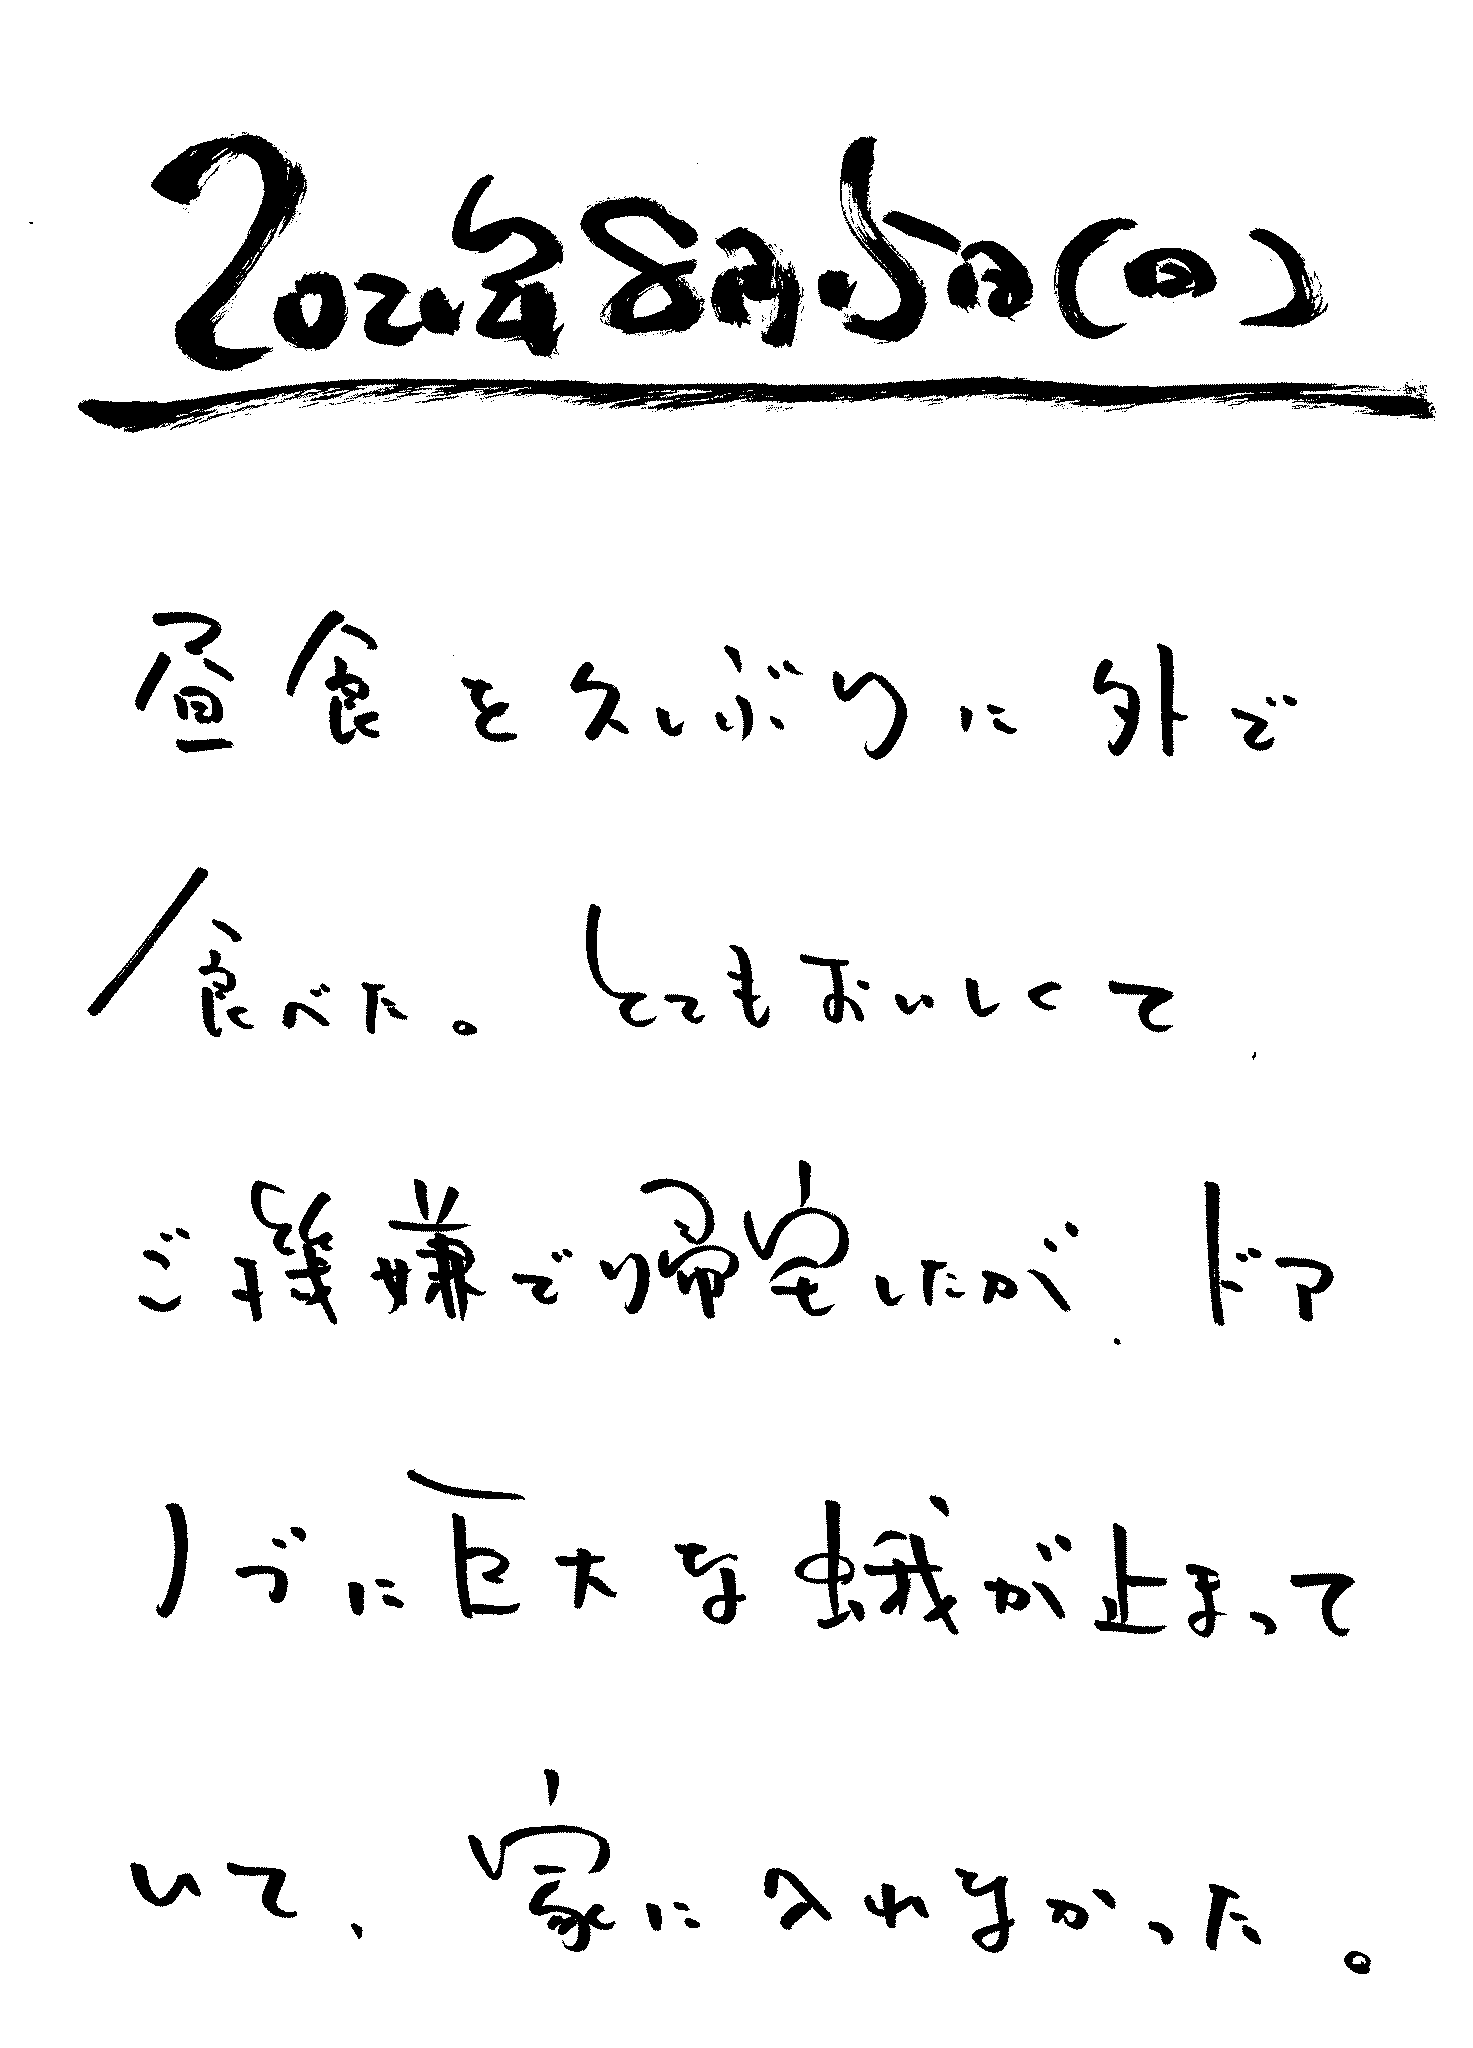 2021年8月15日(日)
昼食を久しぶりに外で
食べた。とてもおいしくて、
ご機嫌で帰宅したが、ドア
ノブに巨大な蛾が止まって
いて、家に入れなかった。